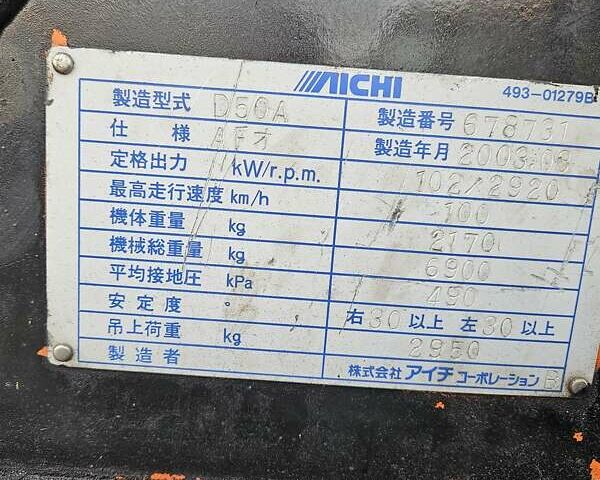 AICHI 493-01279B
製造型式 D50A 製造番号 678731
仕様 AFオ 製造年月 2003.03
定格出力 kW/r.p.m. 102/2920
最高走行速度 km/h 100
機体重量 kg 2170
機械総重量 kg 6900
平均接地圧 kPa 490
安定度 ° 右30以上 左30以上
吊上荷重 kg 2950
製造者 株式会社 アイチ コーポレーション B